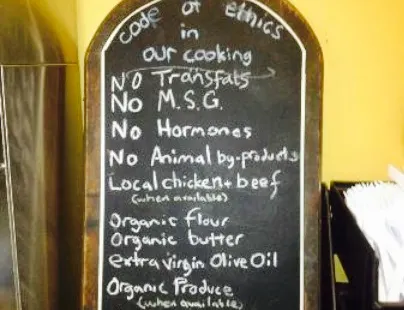 code of ethics
in
our cooking
NO Transfats
No M.S.G.
No Hormones
No Animal by-products
Local chicken + beef
(when available)
Organic flour
Organic butter
extra virgin Olive Oil
Organic Produce
(when available)